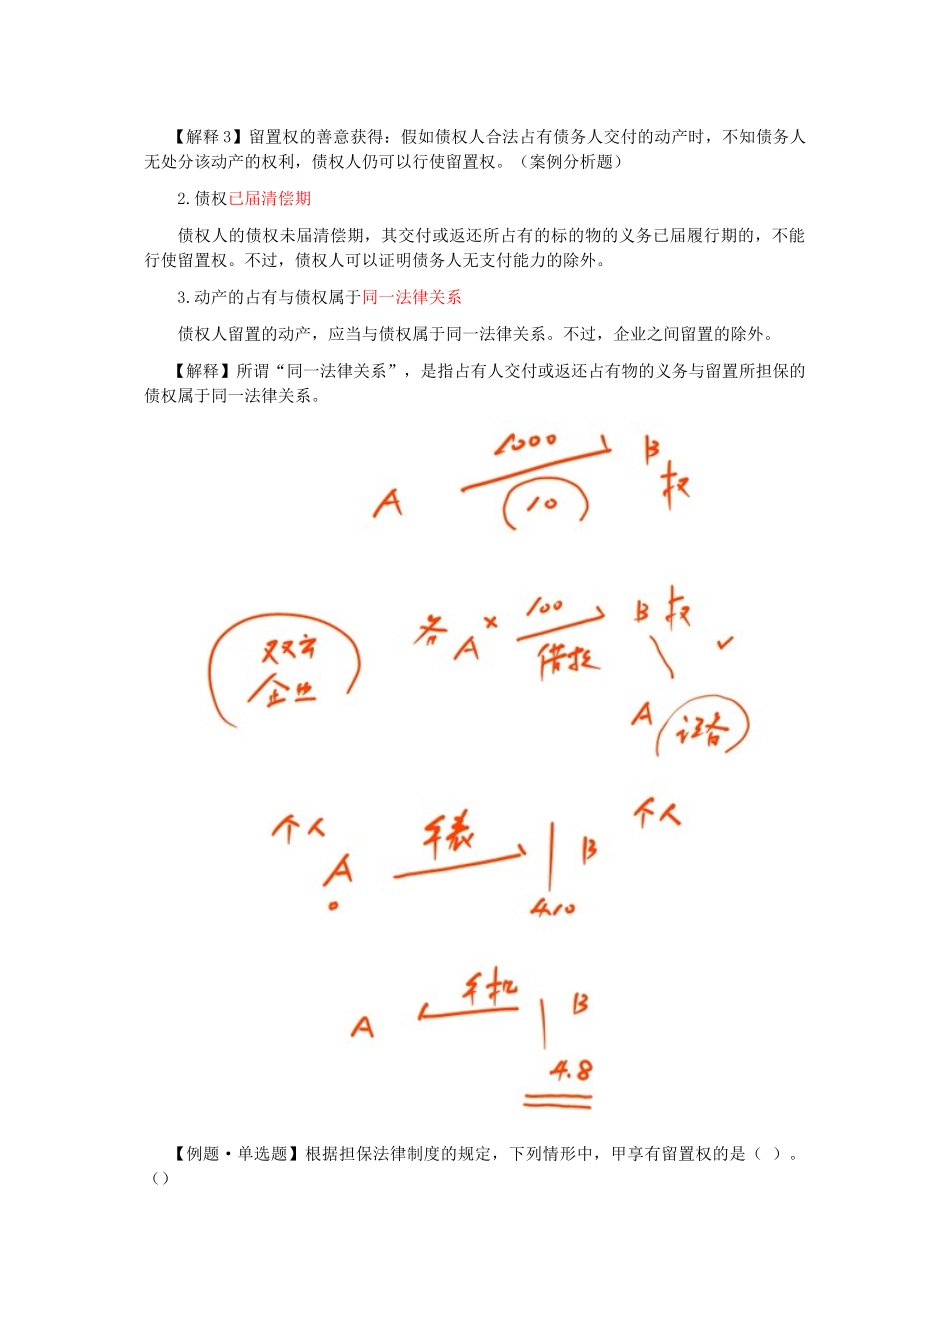 【解释 3】留置权的善意获得：假如债权人合法占有债务人交付的动产时，不知债务人
无处分该动产的权利，债权人仍可以行使留置权。（案例分析题）
2.债权已届清偿期
债权人的债权未届清偿期，其交付或返还所占有的标的物的义务已届履行期的，不能
行使留置权。不过，债权人可以证明债务人无支付能力的除外。
3.动产的占有与债权属于同一法律关系
债权人留置的动产，应当与债权属于同一法律关系。不过，企业之间留置的除外。
【解释】所谓“同一法律关系”，是指占有人交付或返还占有物的义务与留置所担保的
债权属于同一法律关系。
1000
B
A
10
权
双方
企业
A
100
B 权
A
设备
个人
手表
个人
A
B
0
4.10
手机
A
B
4.8
【例题·单选题】根据担保法律制度的规定，下列情形中，甲享有留置权的是（ ）。
()